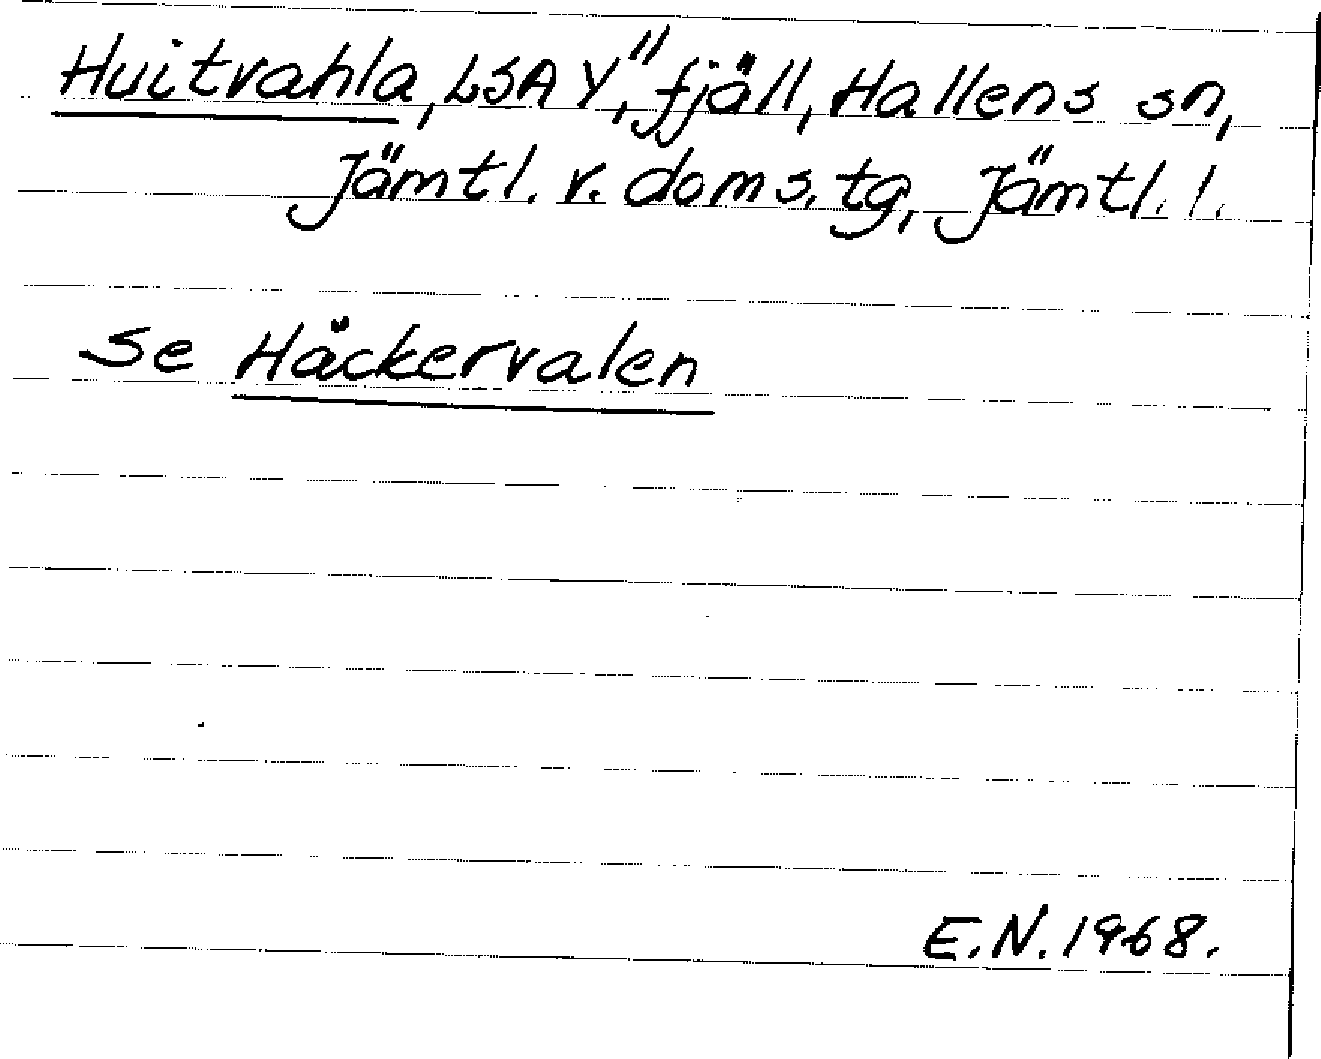 Huitvahla, LSA Y," fjäll, Hallens sn,
Jämtl. v. doms. tg, Jämtl. l.
Se Häckervalen
E.N. 1968.